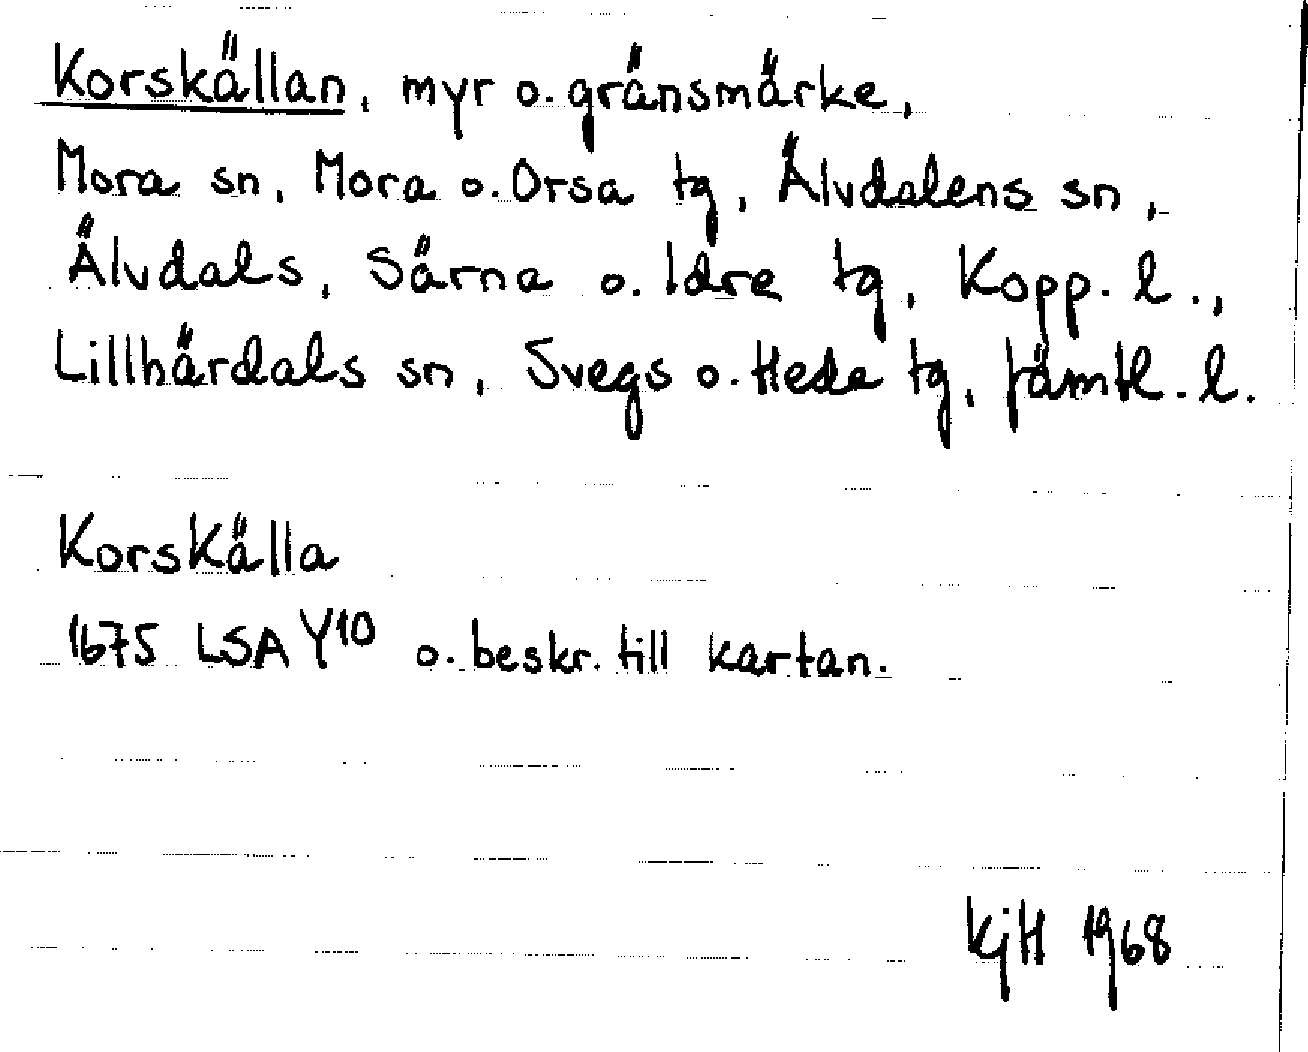 Korskällan, myr o. gränsmärke,
Mora sn, Mora o. Orsa tg, Älvdalens sn,
Älvdals, Särna o. Idre tg, Kopp. l.,
Lillhärdals sn, Svegs o. Hede tg, Jämtl. l.
Korskälla
1675 LSA Y10 o. beskr. till kartan.
KjH 1968